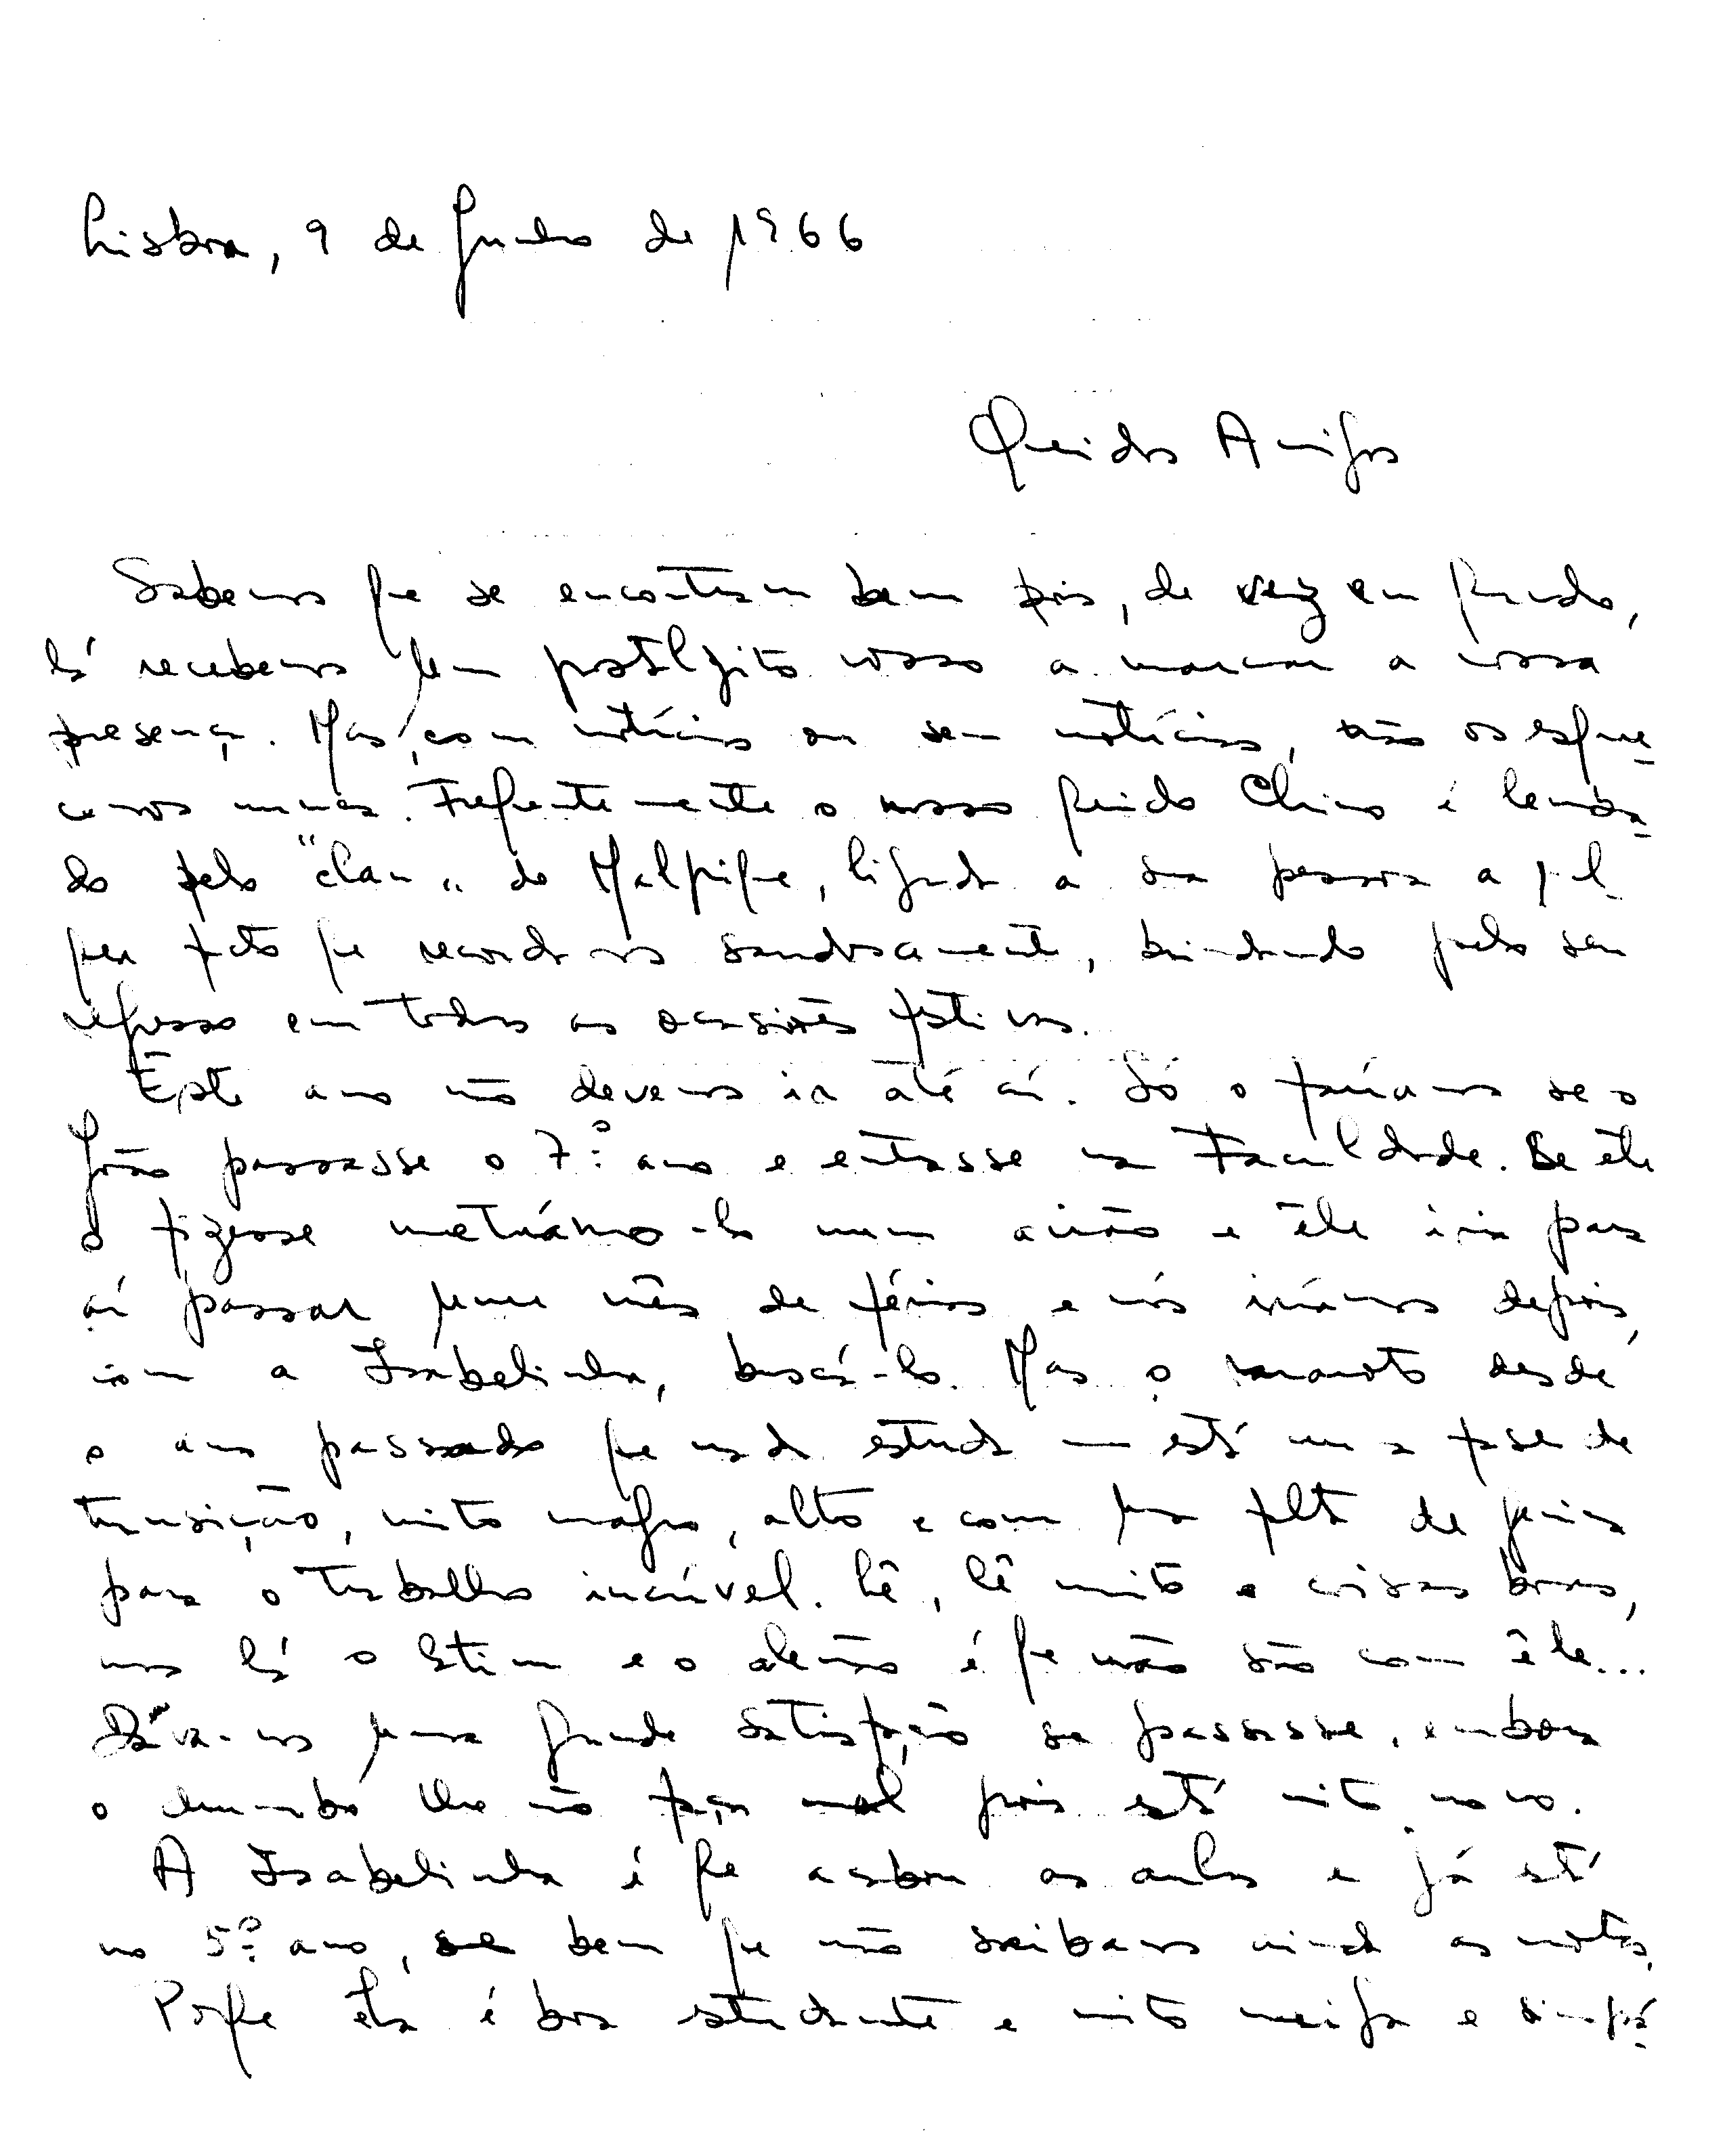 Lisboa, 9 de Junho de 1966
Queridos Amigos
Sabemos que se encontram bem pois, de vez em quando,
lá recebemos um postalzito vosso a marcar a vossa
presença. Mas, com notícias ou sem notícias, não os esque-
cemos nunca. Frequentemente o nosso querido Chico é lembra-
do pelo "clan" de Malpique, ligada a sua pessoa a qual-
quer facto que recordamos saudosamente, brindando pelo seu
regresso em todas as ocasiões festivas.
Êste ano não devemos ir até aí. Só o faríamos se o
João passasse o 7.º ano e entrasse na Faculdade. Se êle
o fizesse metíamo-lo num avião e êle iria para
aí passar um mês de férias e nós iríamos depois,
com a Isabelinha, buscá-lo. Mas o maroto desde
o ano passado que nada estuda — está numa fase de
transição, muito magro, alto e com uma falta de genica
para o trabalho incrível. Lê, lê muito e coisas boas,
mas lá o latim e o alemão é que não são com êle...
Dava-nos uma grande satisfação se passasse, embora
o chumbo lhe não faça mal pois está muito novo.
A Isabelinha é que acabou as aulas e já está
no 5.º ano, se bem que não saibamos ainda as notas.
Porque ela é boa estudante e muito meiga e simpá-